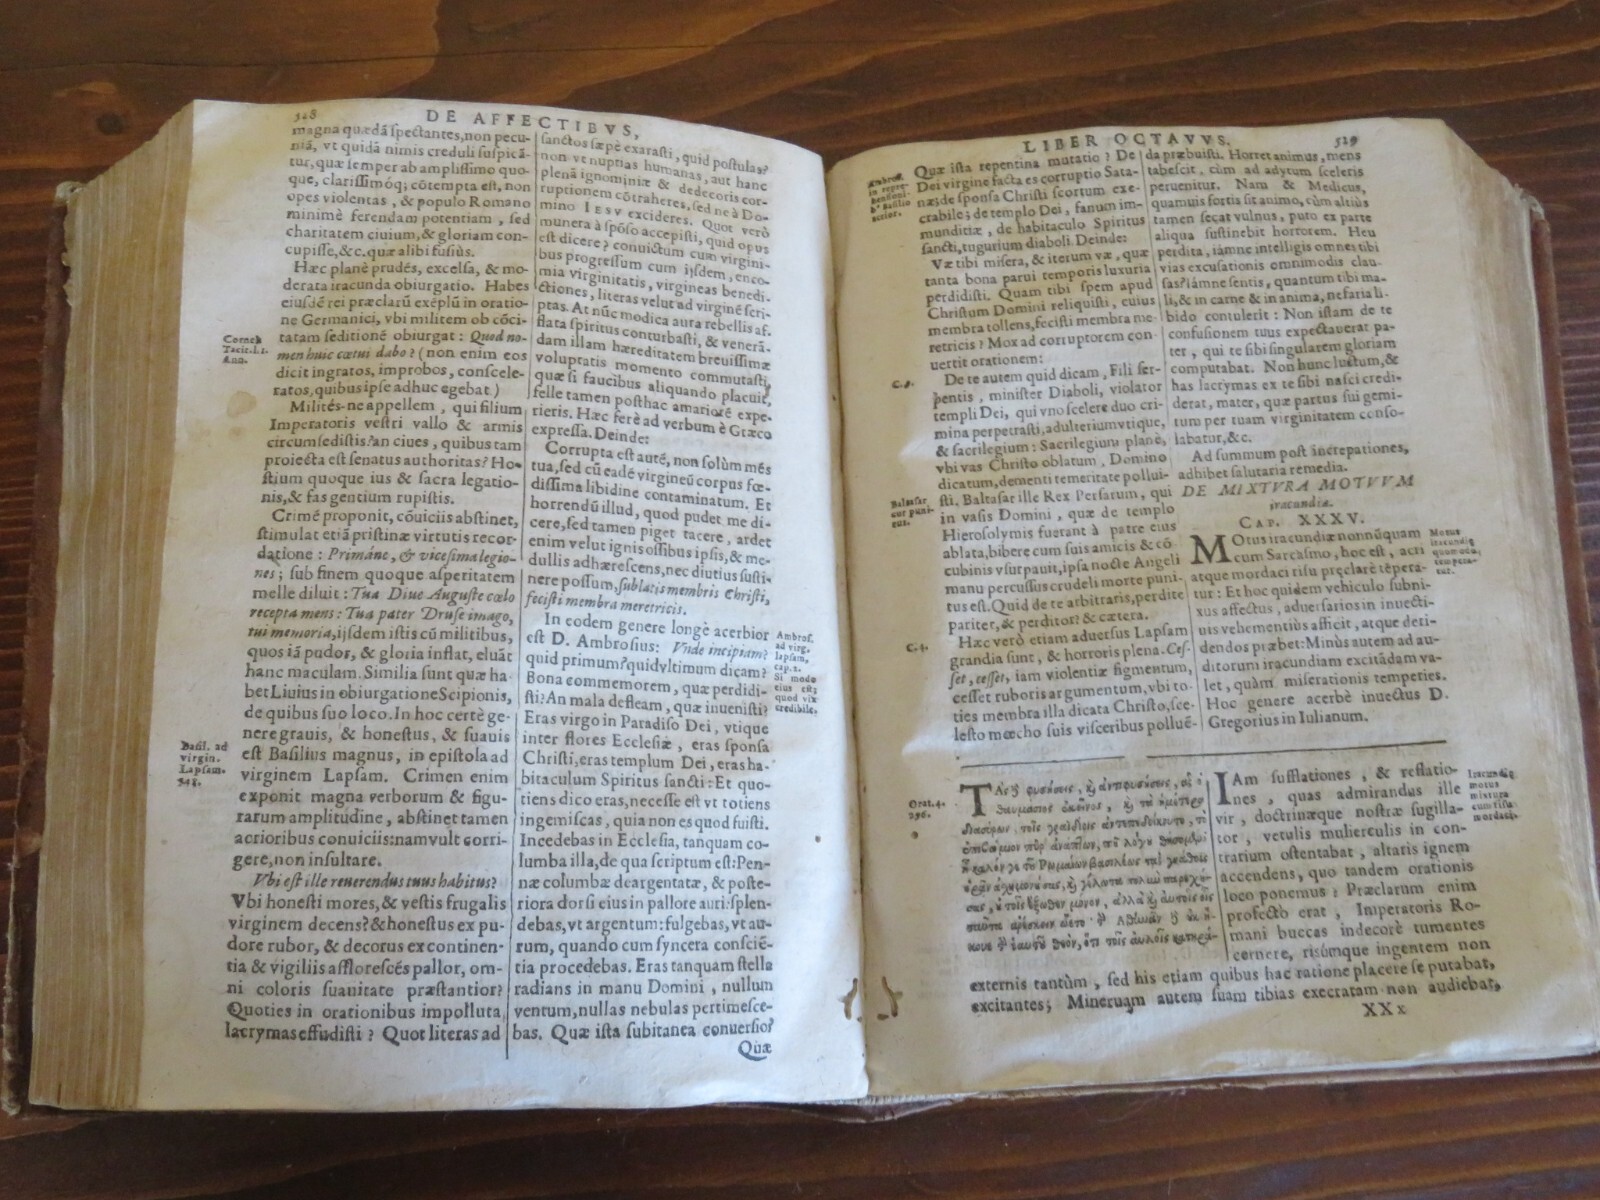 328
DE AFFECTIBVS,
magna quædā spectantes, non pecu-
niā, vt quidā nimis creduli suspicā-
tur, quæ semper ab amplissimo quo-
que, clarissimóq; cōtempta est, non
opes violentas, & populo Romano
minimè ferendam potentiam, sed
charitatem ciuium, & gloriam con-
cupisse, &c. quæ alibi fusiùs.
Hæc planè prudēs, excelsa, & mo-
derata iracunda obiurgatio. Habes
eiusdē rei præclarū exēplū in oratio-
ne Germanici, vbi militem ob cōci-
tatam seditionē obiurgat: Quod no-
men huic cœtui dabo? (non enim eos
dicit ingratos, improbos, conscele-
ratos, quibus ipse adhuc egebat.)
Cornel.
Tacit. l. 1.
Ann.
Milités-ne appellem, qui filium
Imperatoris vestri vallo & armis
circumsedistis? an ciues, quibus tam
proiecta est senatus authoritas? Ho-
stium quoque ius & sacra legatio-
nis, & fas gentium rupistis.
Crimē proponit, cōuiciis abstinet,
stimulat etiā pristinæ virtutis recor-
datione: Primáne, & vicesima legio-
nes; sub finem quoque asperitatem
melle diluit: Tua Diue Auguste cœlo
recepta mens: Tua pater Druse imago,
tui memoria, ijsdem istis cū militibus,
quos iā pudor, & gloria inflat, eluāt
hanc maculam. Similia sunt quæ ha-
bet Liuius in obiurgatione Scipionis,
de quibus suo loco. In hoc certè ge-
nere grauis, & honestus, & suauis
est Basilius magnus, in epistola ad
virginem Lapsam. Crimen enim
exponit magna verborum & figu-
rarum amplitudine, abstinet tamen
acrioribus conuiciis: nam vult corri-
gere, non insultare.
Basil. ad
virgin.
Lapsam.
Vbi est ille reuerendus tuus habitus?
Vbi honesti mores, & vestis frugalis
virginem decens? & honestus ex pu-
dore rubor, & decorus ex continen-
tia & vigiliis afflorescēs pallor, om-
ni coloris suauitate præstantior?
Quoties in orationibus impolluta
lacrymas effudisti? Quot literas ad
sanctos sæpè exarasti, quid postulas?
non vt nuptias humanas, aut hanc
plenā ignominiæ & dedecoris cor-
ruptionem cōtraheres, sed ne à Do-
mino IESV excideres. Quot verò
munera à spōso accepisti, quid opus
est dicere? convictum cum virgini-
bus progressum cum ijsdem, enco-
mia virginitatis, virgineas benedi-
ctiones, literas velut ad virginē scri-
ptas. At nūc modica aura rebellis af-
flata spiritus conturbasti, & venerā-
dam illam hæreditatem breuissimæ
voluptatis momento commutasti,
quæ si faucibus aliquando placuit,
felle tamen posthac amariorē expe-
rieris. Hæc ferè ad verbum è Græco
expressa. Deinde:
Corrupta est autē, non solùm mēs
tua, sed cū eadē virgineū corpus fœ-
dissima libidine contaminatum. Et
horrendū illud, quod pudet me di-
cere, sed tamen piget tacere, ardet
enim velut ignis ossibus ipsis, & me-
dullis adhærescens, nec diutius susti-
nere possum, sublatis membris Christi,
fecisti membra meretricis.
In eodem genere longè acerbior
est D. Ambrosius: Vnde incipiam?
quid primum? quid vltimum dicam?
Bona commemorem, quæ perdidi-
sti? An mala defleam, quæ inuenisti?
Eras virgo in Paradiso Dei, vtique
inter flores Ecclesiæ, eras sponsa
Christi, eras templum Dei, eras ha-
bitaculum Spiritus sancti: Et quo-
tiens dico eras, necesse est vt totiens
ingemiscas, quia non es quod fuisti.
Incedebas in Ecclesia, tanquam co-
lumba illa, de qua scriptum est: Pen-
næ columbæ deargentatæ, & poste-
riora dorsi eius in pallore auri: splen-
debas, vt argentum: fulgebas, vt au-
rum, quando cum syncera consciē-
tia procedebas. Eras tanquam stella
radians in manu Domini, nullum
ventum, nullas nebulas pertimesce-
bas. Quæ ista subitanea conuersio?
Quæ
Ambros.
ad virg.
lapsam,
cap. 2.
Si modo
eius est;
quod vix
credibile.
LIBER OCTAVVS.
529
Ambros.
in repre-
hensioni-
Quæ ista repentina mutatio? De
Dei virgine facta es corruptio Sata-
næ; de sponsa Christi scortum exe-
crabile; de templo Dei, fanum im-
munditiæ, de habitaculo Spiritus
sancti, tugurium diaboli. Deinde:
Væ tibi misera, & iterum væ, quæ
tanta bona parui temporis luxuria
perdidisti. Quam tibi spem apud
Christum Domini reliquisti, cuius
membra tollens, fecisti membra me-
retricis? Mox ad corruptorem con-
uertit orationem:
C. 3.
De te autem quid dicam, Fili ser-
pentis, minister Diaboli, violator
templi Dei, qui vno scelere duo cri-
mina perpetrasti, adulterium vtique,
& sacrilegium: Sacrilegium planè,
vbi vas Christo oblatum, Domino
dicatum, dementi temeritate pollui-
sti. Baltasar ille Rex Persarum, qui
in vasis Domini, quæ de templo
Hierosolymis fuerant à patre eius
ablata, bibere cum suis amicis & cō-
cubinis vsurpauit, ipsa nocte Angeli
manu percussus crudeli morte puni-
tus est. Quid de te arbitraris, perdite
pariter, & perditor? & cætera.
Baltasar
cur puni-
tus.
C. 4.
Hæc verò etiam aduersus Lapsam
grandia sunt, & horroris plena. Ces-
set, cesset, iam violentiæ figmentum,
cesset ruboris argumentum, vbi to-
ties membra illa dicata Christo, sce-
lesto mœcho suis visceribus polluē-
da præbuisti. Horret animus, mens
tabescit, cùm ad adytum sceleris
peruenitur. Nam & Medicus,
quamuis fortis sit animo, cùm altiùs
tamen secat vulnus, puto ex parte
aliqua sustinebit horrorem. Heu
perdita, iámne intelligis omnes tibi
vias excusationis omnimodis clau-
sas? iámne sentis, quantum tibi ma-
li, & in carne & in anima, nefaria li-
bido contulerit: Non istam de te
confusionem tuus expectauerat pa-
ter, qui te sibi singularem gloriam
computabat. Non hunc luctum, &
has lacrymas ex te sibi nasci credi-
derat, mater, quæ partus sui gemi-
tum per tuam virginitatem conso-
labatur, &c.
Ad summum post increpationes,
adhibet salutaria remedia.
DE MIXTVRA MOTVVM
iracundiæ.
CAP. XXXV.
MOtus iracundiæ nonnūquam
cum Sarcasmo, hoc est, acri
atque mordaci risu præclarè tēpera-
tur: Et hoc quidem vehiculo subni-
xus affectus, aduersarios in inuecti-
uis vehementiùs afficit, atque deri-
dendos præbet: Minùs autem ad au-
ditorum iracundiam excitādam va-
let, quàm miserationis temperies.
Hoc genere acerbè inuectus D.
Gregorius in Iulianum.
Motus
iracundiæ
quomodo
tempera-
tur.
Orat. 4.
296.
IAm sufflationes, & reflatio-
nes, quas admirandus ille
vir, doctrinæque nostræ sugilla-
tor, vetulis mulierculis in con-
tratium ostentabat, altaris ignem
accendens, quo tandem orationis
loco ponemus? Præclarum enim
profecto erat, Imperatoris Ro-
mani buccas indecorè tumentes
cernere, risúmque ingentem non
externis tantùm, sed his etiam quibus hac ratione placere se putabat,
excitantes; Mineruam autem suam tibias execratam non audiebat,
Iracundiæ
motus
mixtura
cum risu
mordaci.
XXx